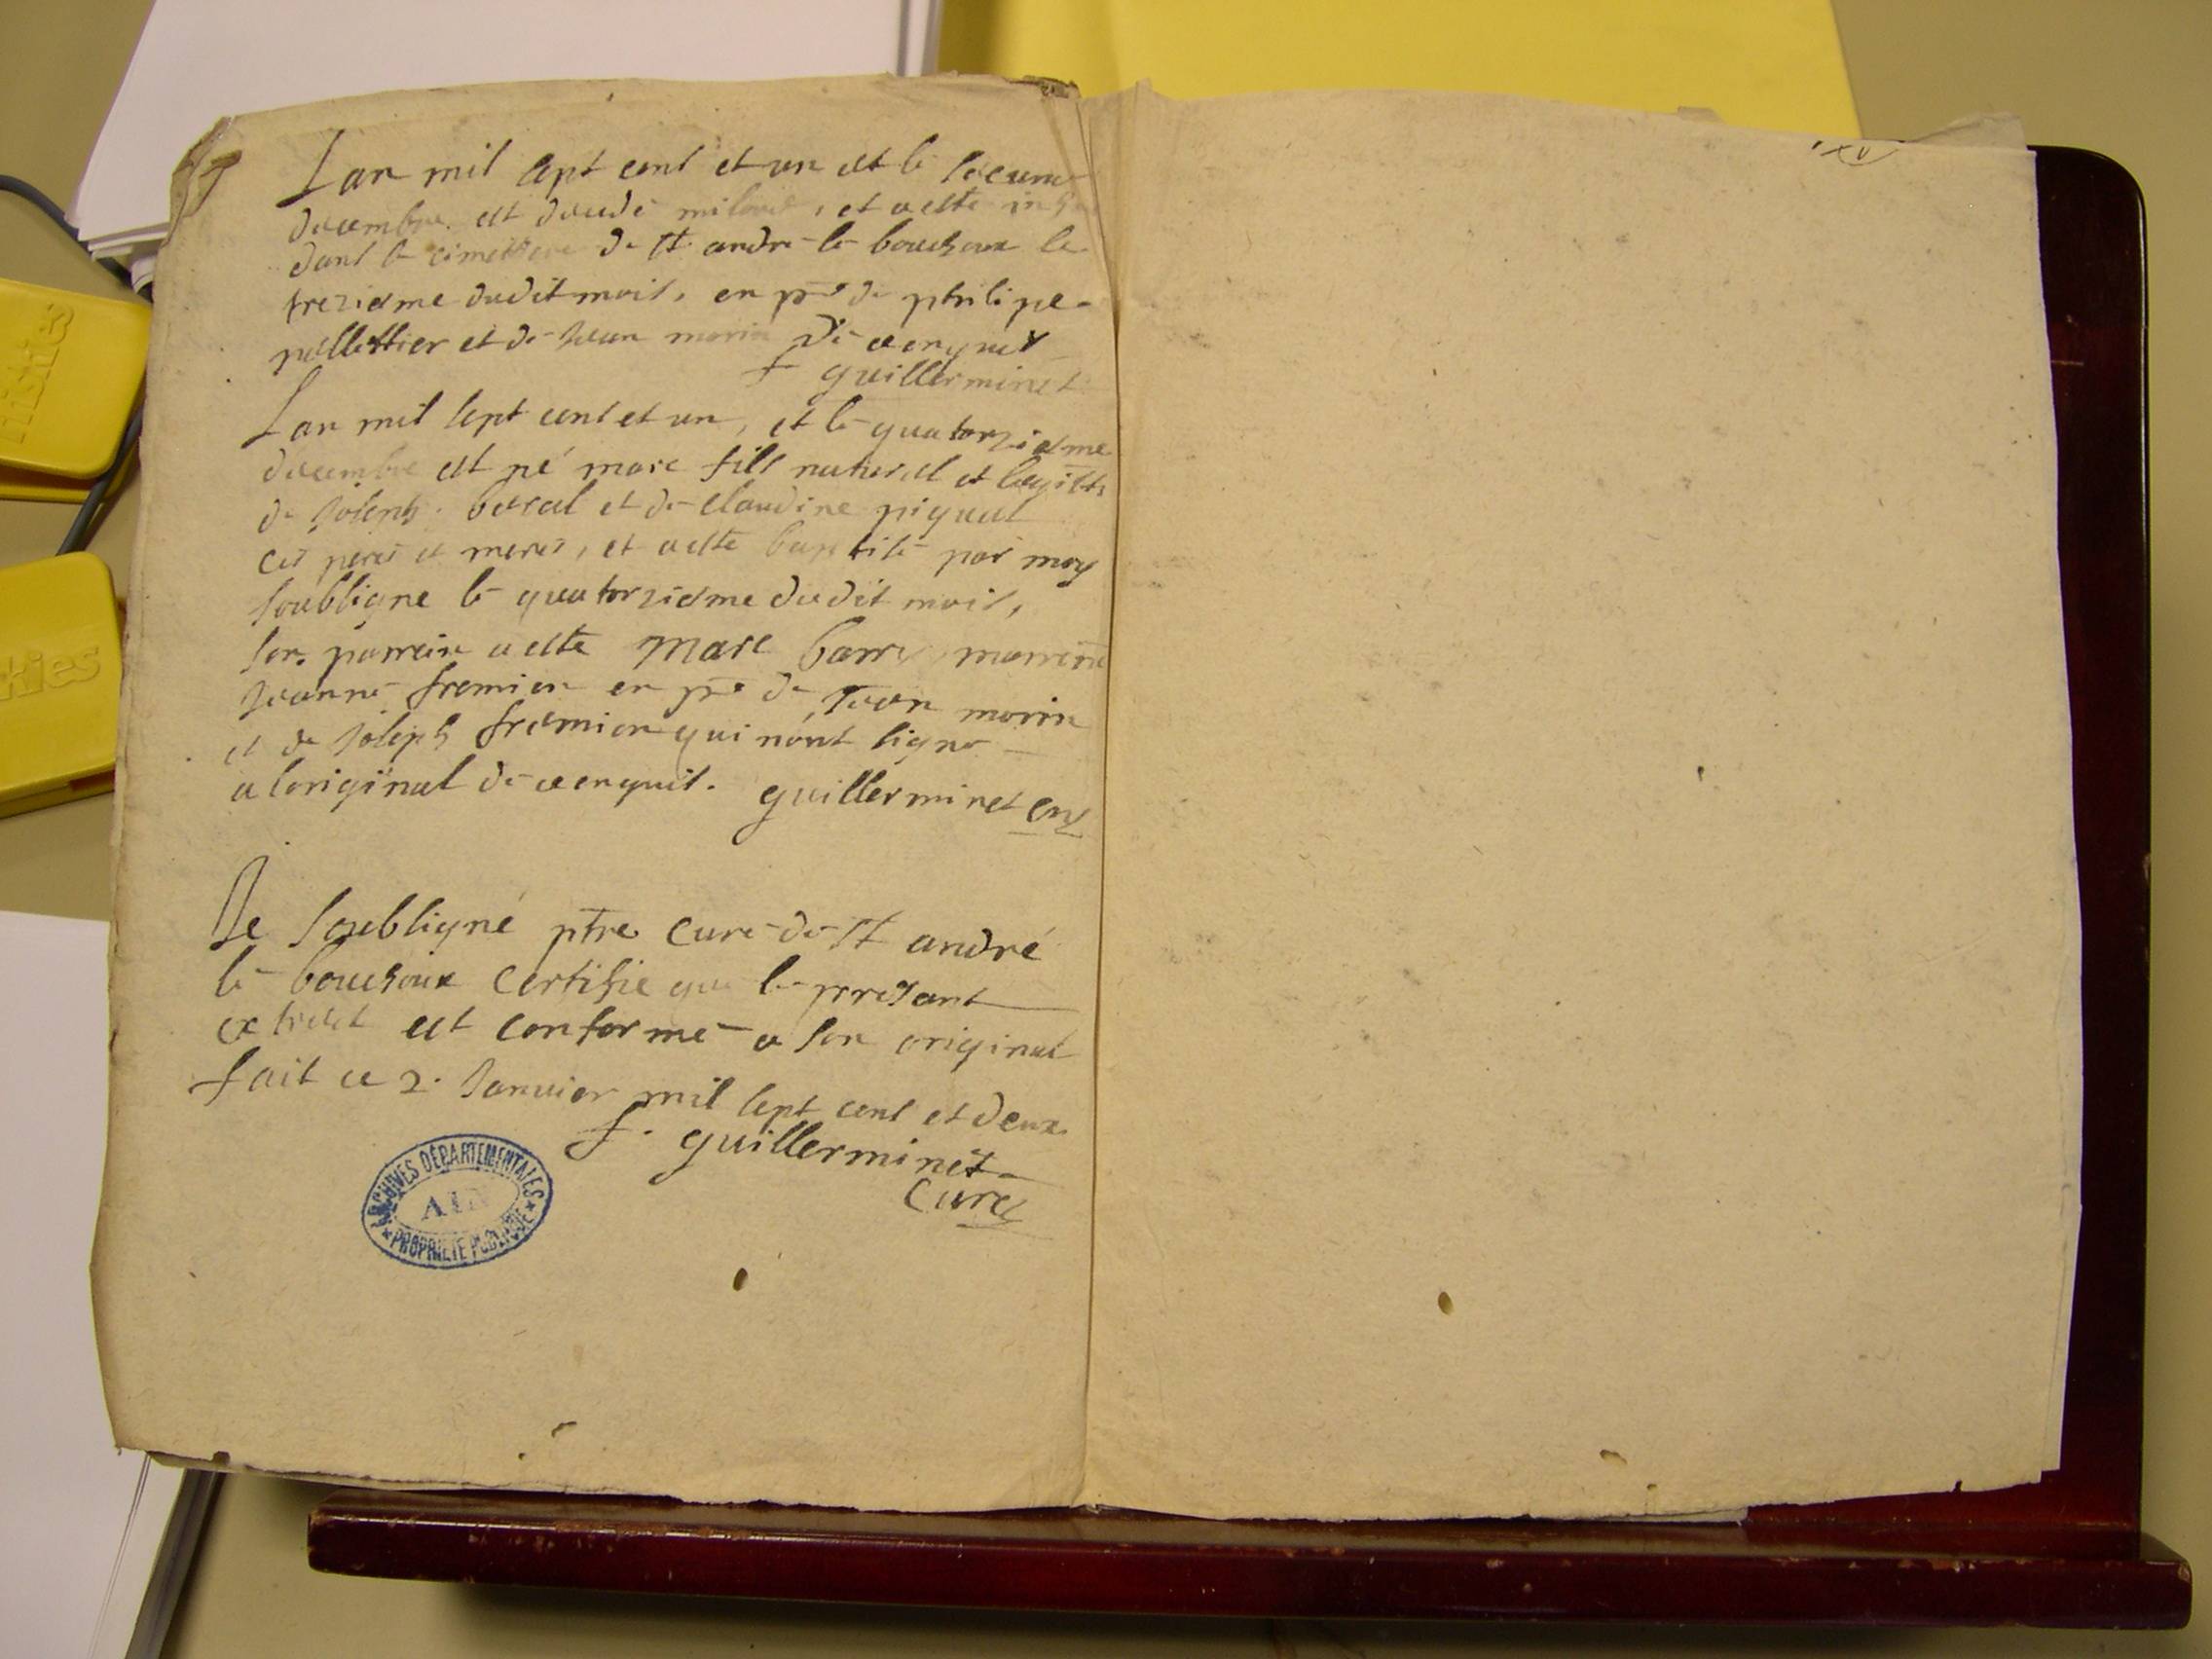 Lan mil sept cent et un et le
decembre est decede, et a esté
dans le cimettiere de st andré le bouchoux le
treziesme dudit mois, en pce de philipe
pellettier et de Jean morin de ce enquis
f guillerminet
Lan mil sept cent et un, et le quatorziesme
decembre est né marc fils naturel et
de Joseph et de claudine piquat
ces peres et meres, et a esté baptisé par moy
soubsigne le quatorziesme dudit mois,
son parrein a esté Marc marreine
Jeanne fremion en pce de Jean morin
et de Joseph fremion qui nont signe
a loriginal de ce enquis. guillerminet curé
Je soubsigné ptre curé de st andré
le bouchoux certifie que le presant
extrait est conforme a son original
fait ce 2. Janvier mil sept cent et deux
f. guillerminet
curé
ARCHIVES DÉPARTEMENTALES
AIN
PROPRIÉTÉ PUBLIQUE
kies